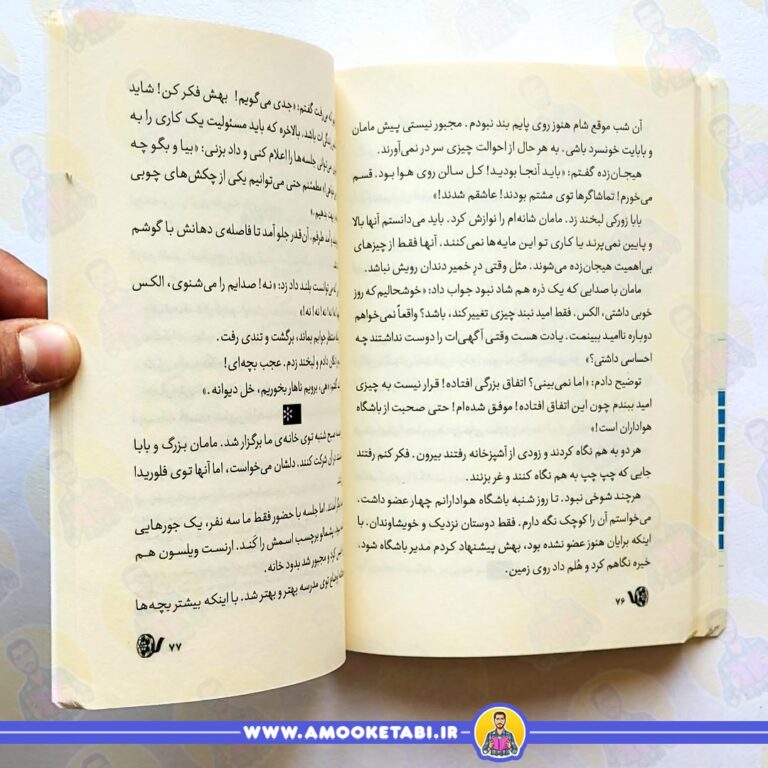 آن شب موقع شام هنوز روی پایم بند نبودم. مجبور نیستی پیش مامان
و بابایت خونسرد باشی. به هر حال از احوالت چیزی سر در نمی‌آورند.
هیجان‌زده گفتم: «باید آنجا بودید! کل سالن روی هوا بود. قسم
می‌خورم! تماشاگرها توی مشتم بودند! عاشقم شدند!»
بابا زورکی لبخند زد. مامان شانه‌ام را نوازش کرد. باید می‌دانستم آنها بالا
و پایین نمی‌پرند یا کاری تو این مایه‌ها نمی‌کنند. آنها فقط از چیزهای
بی‌اهمیت هیجان‌زده می‌شوند. مثل وقتی درِ خمیر دندان رویش نباشد.
مامان با صدایی که یک ذره هم شاد نبود جواب داد: «خوشحالیم که روز
خوبی داشتی، الکس. فقط امید نبند چیزی تغییر کند، باشد؟ واقعاً نمی‌خواهم
دوباره ناامید ببینمت. یادت هست وقتی آگهی‌ات را دوست نداشتند چه
احساسی داشتی؟»
توضیح دادم: «اما نمی‌بینی؟ اتفاق بزرگی افتاده! قرار نیست به چیزی
امید ببندم چون این اتفاق افتاده! موفق شده‌ام! حتی صحبت از باشگاه
هواداران است!»
هر دو به هم نگاه کردند و زودی از آشپزخانه رفتند بیرون. فکر کنم رفتند
جایی که چپ چپ به هم نگاه کنند و غر بزنند.
هرچند شوخی نبود. تا روز شنبه باشگاه هوادارانم چهار عضو داشت.
می‌خواستم آن را کوچک نگه دارم. فقط دوستان نزدیک و خویشاوندان. با
اینکه برایان هنوز عضو نشده بود، بهش پیشنهاد کردم مدیر باشگاه شود.
خیره نگاهم کرد و هُلم داد روی زمین.
۷۶
رفت گفتم: «جدی می‌گویم! بهش فکر کن! شاید
باشد. بالاخره که باید مسئولیت یک کاری را به
جلسه‌ها را اعلام کنی و داد بزنی: «بیا و بگو چه
مطمئنم حتی می‌توانیم یکی از چکش‌های چوبی
بدهیم.»
آمد طرفم. آن‌قدر جلو آمد تا فاصله‌ی دهانش با گوشم
می‌توانست بلند داد زد: «نه! صدایم را می‌شنوی، الکس
نه! نه! نه!»
منتظر جوابم بماند، برگشت و تندی رفت.
دادم و لبخند زدم. عجب بچه‌ای!
«هی، برویم ناهار بخوریم، خل دیوانه.»
صبح شنبه توی خانه‌ی ما برگزار شد. مامان بزرگ و بابا
آن شرکت کنند. دلشان می‌خواست، اما آنها توی فلوریدا
اما جلسه با حضور فقط ما سه نفر، یک جورهایی
برچسب اسمش را کَند. ارنست ویلسون هم
کرد و مجبور شد بدود خانه.
توی مدرسه بهتر و بهتر شد. با اینکه بیشتر بچه‌ها
۷۷
WWW.AMOOKETABI.IR